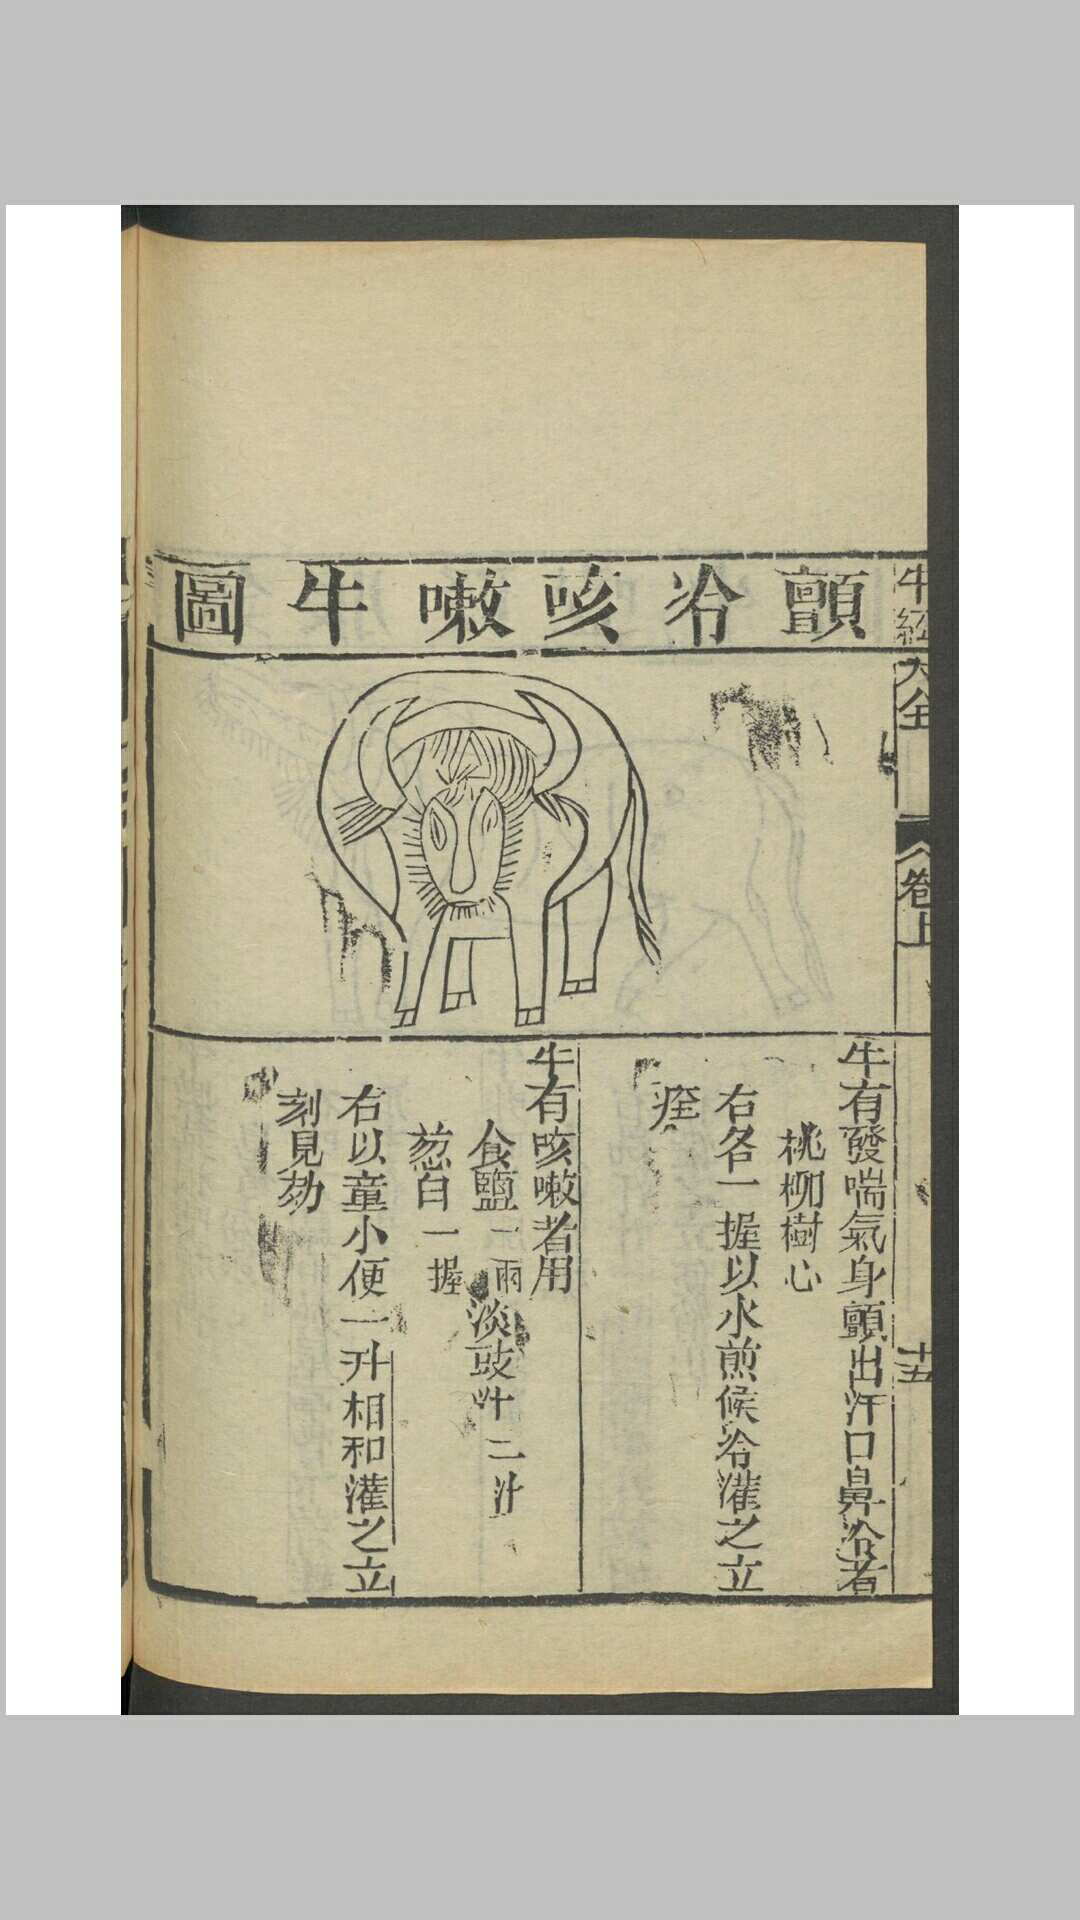 牛經大全
卷上
十五
顫冷咳嗽牛圖
牛有發喘氣身顫出汗口鼻冷者
桃柳樹心
右各一握以水煎候冷灌之立
痊
牛有咳嗽者用
食鹽一兩 淡豉汁二汁
葱白一握
右以童小便一升相和灌之立
刻見効